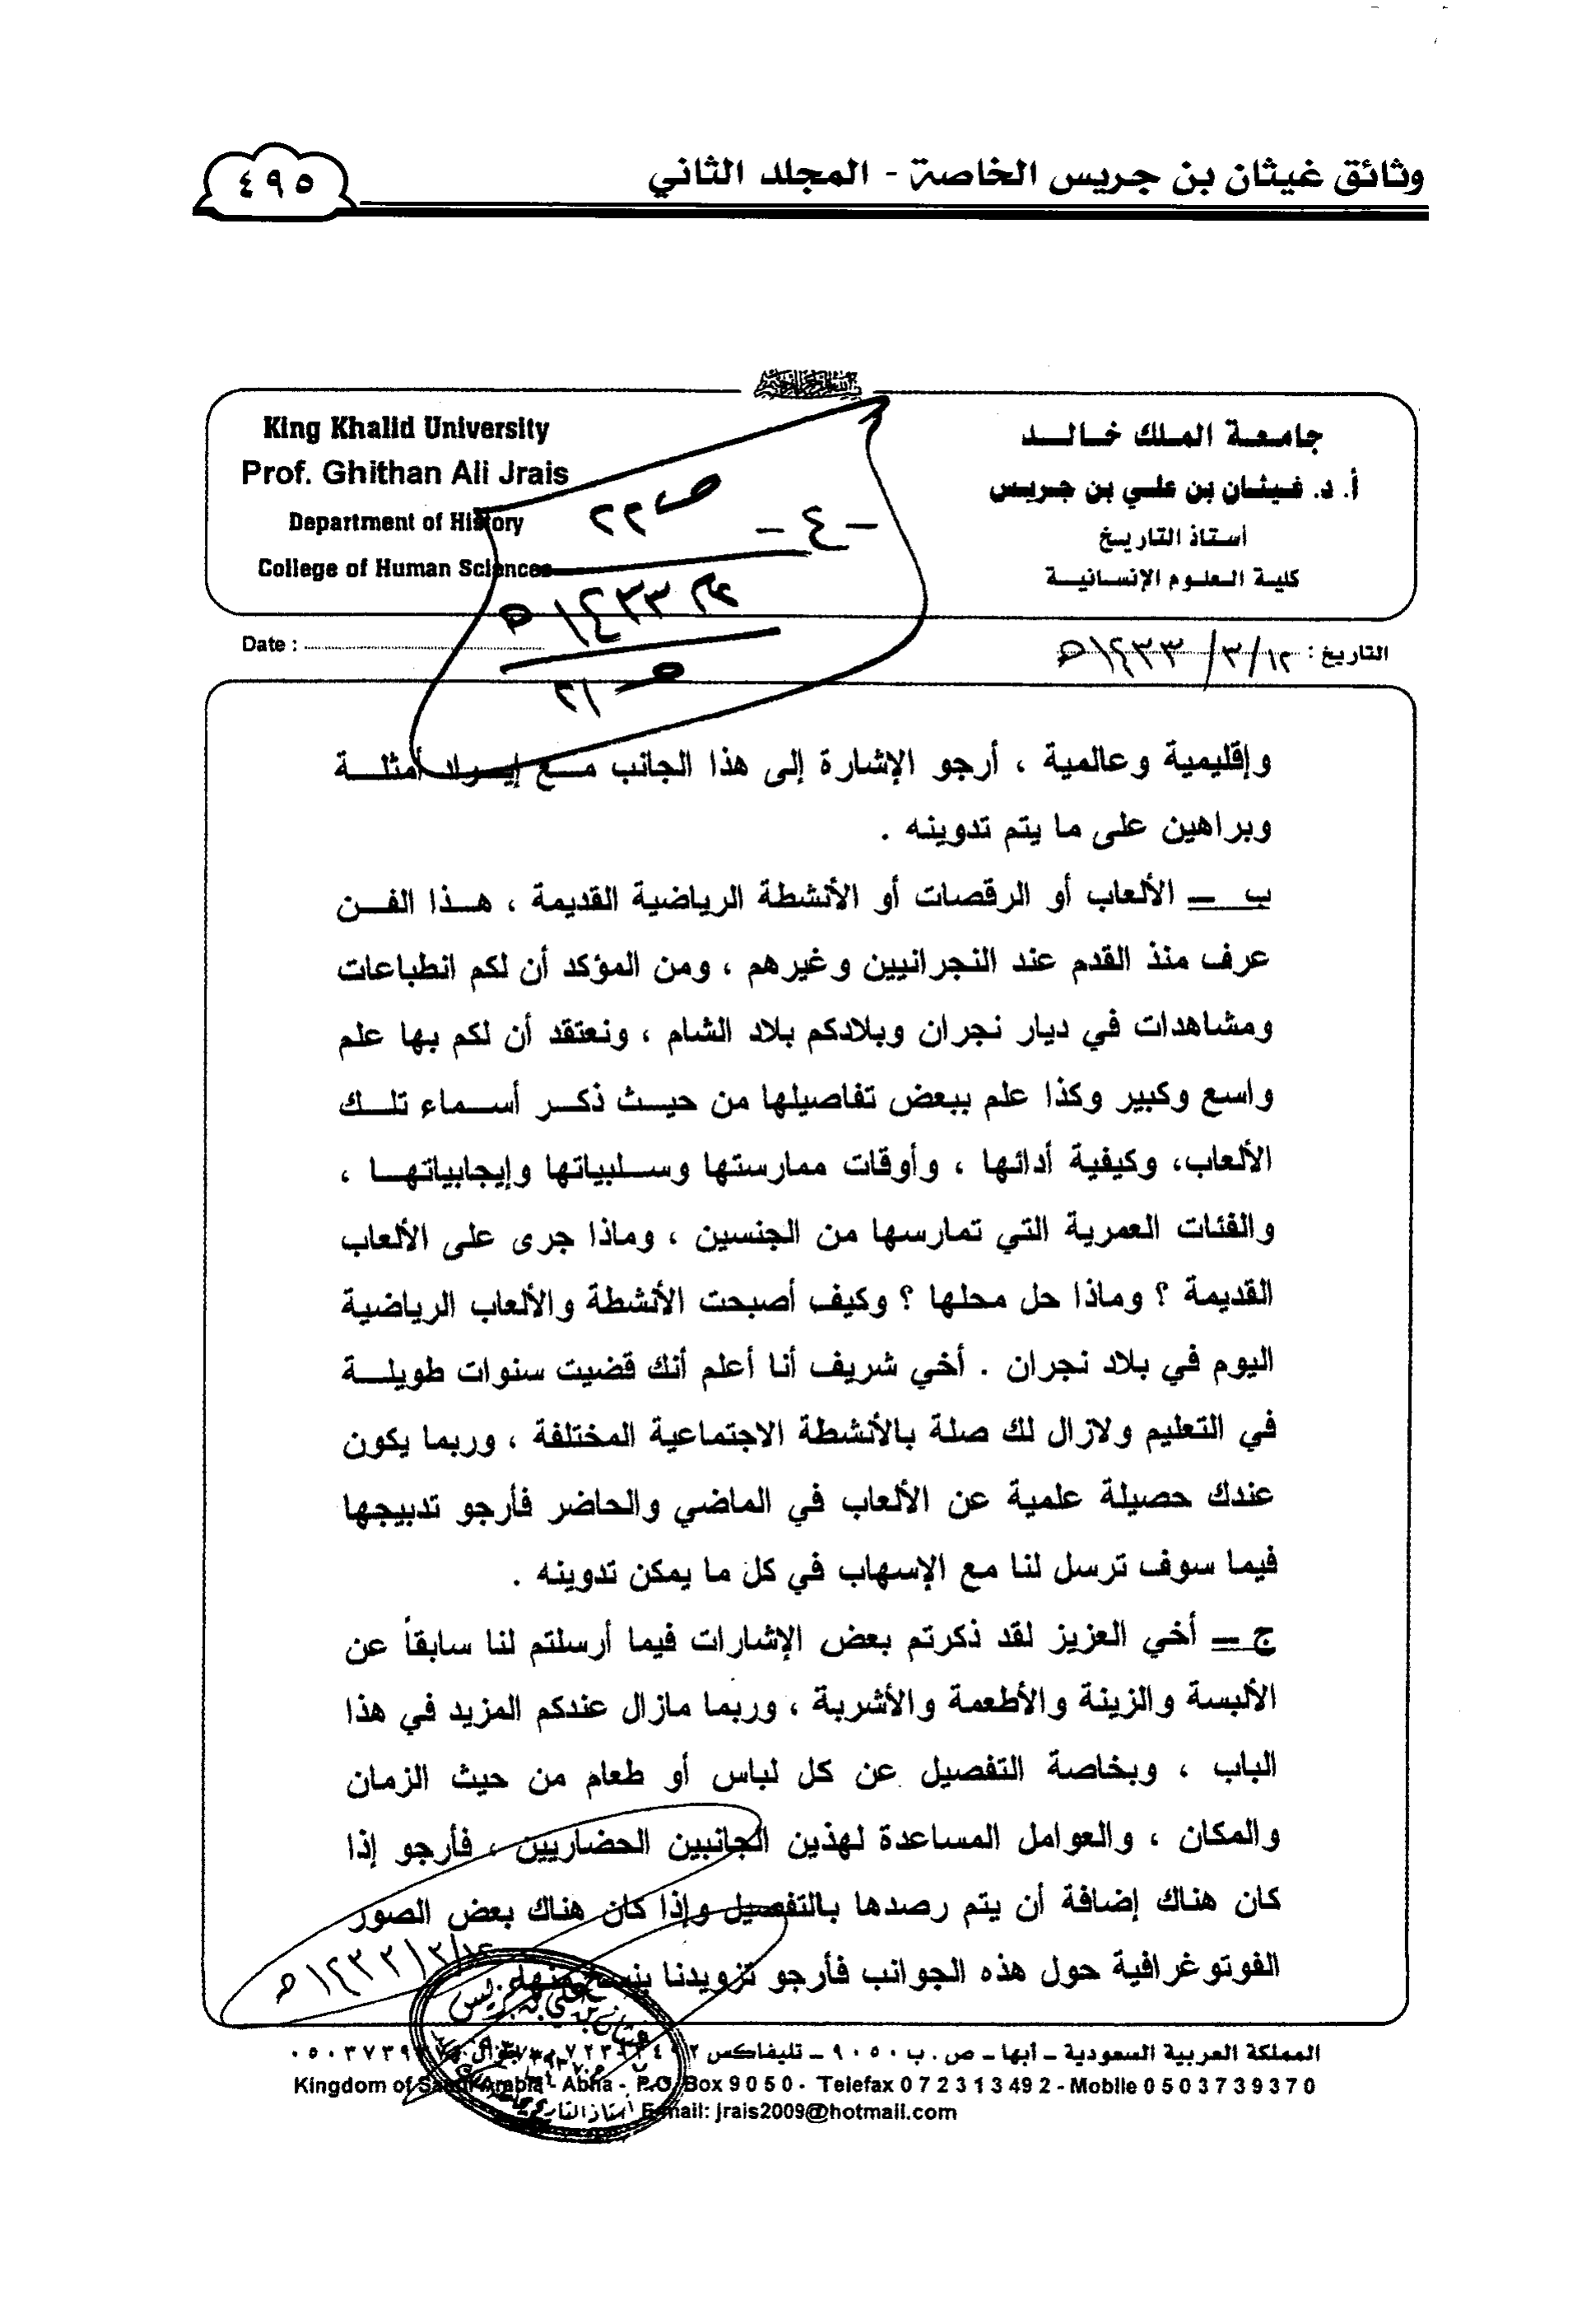 وثائق غيثان بن جريس الخاصة - المجلد الثاني
٤٩٥
جامعة الملك خالد
أ. د. غيثان بن علي بن جريس
أستاذ التاريخ
كلية العلوم الإنسانية
King Khalid University
Prof. Ghithan Ali Jrais
Department of History
College of Human Sciences
- ٤ -
ص ٢٢
١٤٣٣هـ
ص ٣١
التاريخ : ١٢/ ٣/ ١٤٣٣هـ
Date :
وإقليمية وعالمية ، أرجو الإشارة إلى هذا الجانب مع إيراد أمثلة
وبراهين على ما يتم تدوينه .
ب ـ الألعاب أو الرقصات أو الأنشطة الرياضية القديمة ، هذا الفن
عرف منذ القدم عند النجرانيين وغيرهم ، ومن المؤكد أن لكم انطباعات
ومشاهدات في ديار نجران وبلادكم بلاد الشام ، ونعتقد أن لكم بها علم
واسع وكبير وكذا علم ببعض تفاصيلها من حيث ذكر أسماء تلك
الألعاب، وكيفية أدائها ، وأوقات ممارستها وسلبياتها وإيجابياتها ،
والفئات العمرية التي تمارسها من الجنسين ، وماذا جرى على الألعاب
القديمة ؟ وماذا حل محلها ؟ وكيف أصبحت الأنشطة والألعاب الرياضية
اليوم في بلاد نجران . أخي شريف أنا أعلم أنك قضيت سنوات طويلة
في التعليم ولازال لك صلة بالأنشطة الاجتماعية المختلفة ، وربما يكون
عندك حصيلة علمية عن الألعاب في الماضي والحاضر فأرجو تدبيجها
فيما سوف ترسل لنا مع الإسهاب في كل ما يمكن تدوينه .
ج ـ أخي العزيز لقد ذكرتم بعض الإشارات فيما أرسلتم لنا سابقاً عن
الألبسة والزينة والأطعمة والأشربة ، وربما مازال عندكم المزيد في هذا
الباب ، وبخاصة التفصيل عن كل لباس أو طعام من حيث الزمان
والمكان ، والعوامل المساعدة لهذين الجانبين الحضاريين ، فأرجو إذا
كان هناك إضافة أن يتم رصدها بالتفصيل وإذا كان هناك بعض الصور
الفوتوغرافية حول هذه الجوانب فأرجو تزويدنا بنسخ منها
المملكة العربية السعودية ـ أبها ـ ص . ب ٩٠٥٠ ـ تليفاكس
Kingdom of Saudi Arabia - Abha - P.O. Box 9050 - Telefax 072313492 - Mobile 0503739370
E-mail: jrais2009@hotmail.com